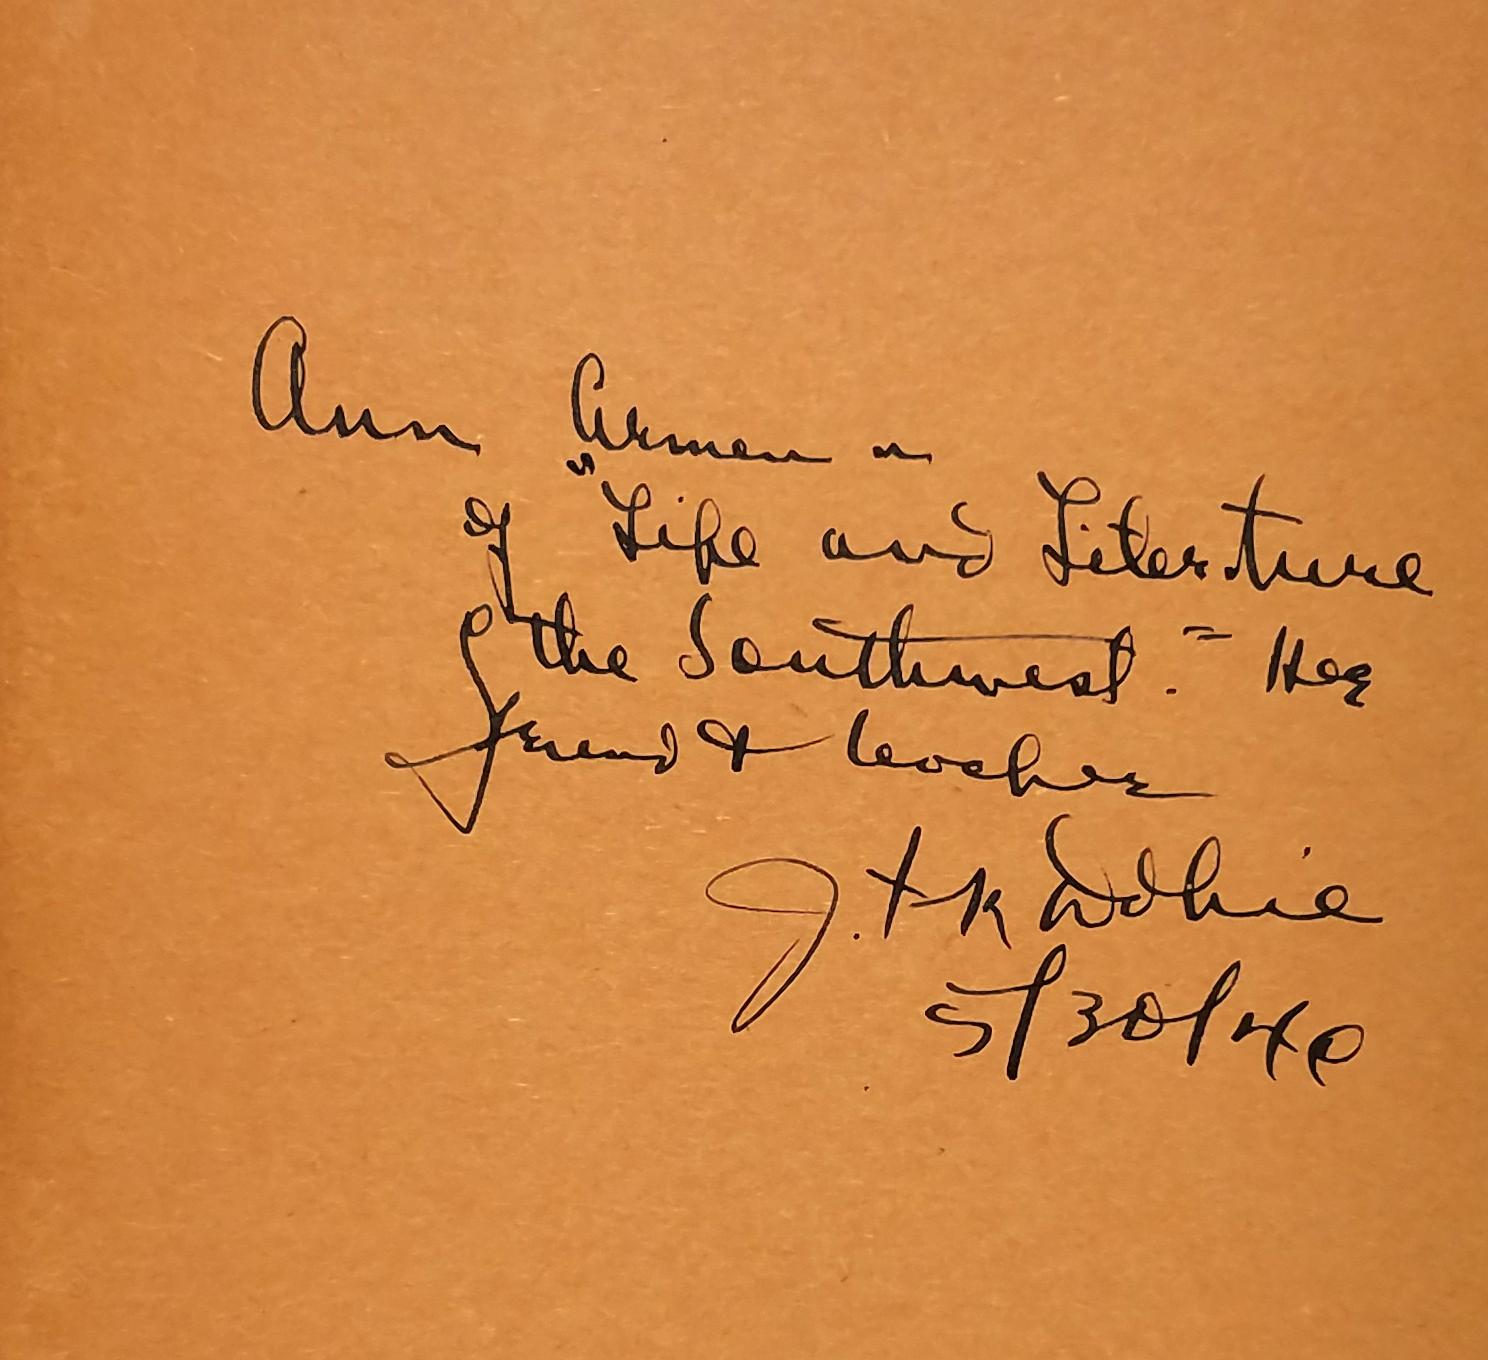 Ann Armen —
of "Life and Literature
the Southwest." Her
friend & teacher
J. Frank Dobie
5/30/40